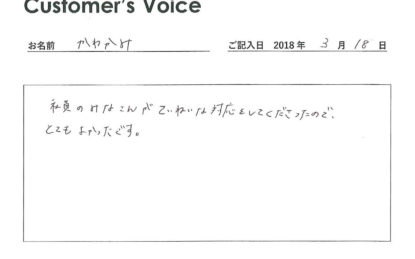 Customer's Voice
お名前 かわかみ ご記入日 2018年 3月 18日
社員のみなさんがていねいな対応をしてくださったので、
とてもよかったです。